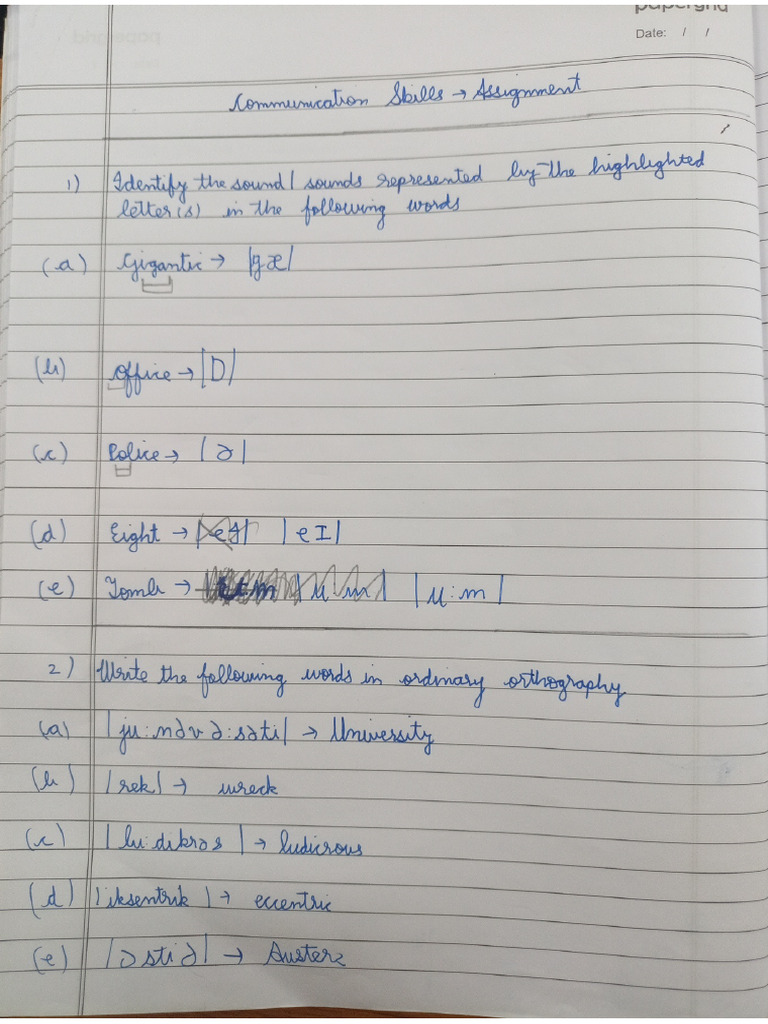 papergrid
Date: / /
Communication Skills → Assignment
1) Identify the sound/ sounds represented by the highlighted
letter(s) in the following words
(a) Gigantic → |gæ|
(b) Office → |D|
(c) Police → |ə|
(d) Eight → |eI|
(e) Tomb → |u:m|
2) Write the following words in ordinary orthography
(a) |ju:nəvə:səti| → University
(b) |rek| → wreck
(c) |lu:dikrəs| → ludicrous
(d) |iksentrik| → eccentric
(e) |əstiə| → Austere